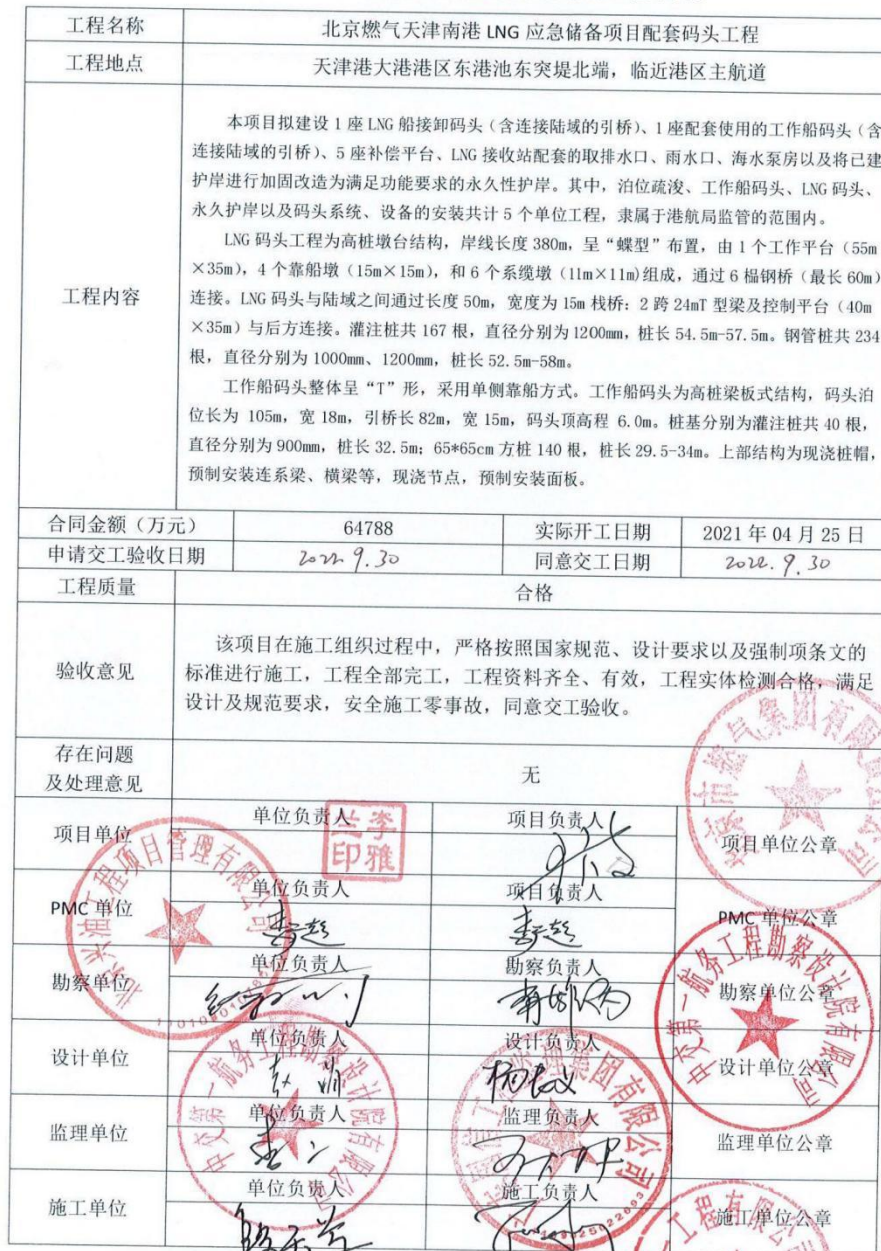 工程名称 北京燃气天津南港 LNG 应急储备项目配套码头工程
工程地点 天津港大港港区东港池东突堤北端，临近港区主航道
工程内容
本项目拟建设 1 座 LNG 船接卸码头（含连接陆域的引桥）、1 座配套使用的工作船码头（含
连接陆域的引桥）、5 座补偿平台、LNG 接收站配套的取排水口、雨水口、海水泵房以及将已建
护岸进行加固改造为满足功能要求的永久性护岸。其中，泊位疏浚、工作船码头、LNG 码头、
永久护岸以及码头系统、设备的安装共计 5 个单位工程，隶属于港航局监管的范围内。
LNG 码头工程为高桩墩台结构，岸线长度 380m，呈“蝶型”布置，由 1 个工作平台（55m
×35m），4 个靠船墩（15m×15m），和 6 个系缆墩（11m×11m)组成，通过 6 榀钢桥（最长 60m）
连接。LNG 码头与陆域之间通过长度 50m，宽度为 15m 栈桥：2 跨 24mT 型梁及控制平台（40m
×35m）与后方连接。灌注桩共 167 根，直径分别为1200mm，桩长 54.5m-57.5m。钢管桩共 234
根，直径分别为 1000mm、1200mm，桩长 52.5m-58m。
工作船码头整体呈“T”形，采用单侧靠船方式。工作船码头为高桩梁板式结构，码头泊
位长为 105m，宽 18m，引桥长 82m，宽 15m，码头顶高程 6.0m。桩基分别为灌注桩共 40 根，
直径分别为 900mm，桩长 32.5m；65*65cm 方桩 140 根，桩长 29.5-34m。上部结构为现浇桩帽，
预制安装连系梁、横梁等，现浇节点，预制安装面板。
合同金额（万元） 64788 实际开工日期 2021 年 04 月 25 日
申请交工验收日期 2022.9.30 同意交工日期 2022.9.30
工程质量 合格
验收意见
该项目在施工组织过程中，严格按照国家规范、设计要求以及强制项条文的
标准进行施工，工程全部完工，工程资料齐全、有效，工程实体检测合格，满足
设计及规范要求，安全施工零事故，同意交工验收。
存在问题
及处理意见
无
项目单位 单位负责人 项目负责人 项目单位公章
李雅兰印
北京市燃气集团有限责任公司
PMC 单位 单位负责人 项目负责人 PMC 单位公章
李超 李超
北京兴油工程项目管理有限公司
勘察单位 单位负责人 勘察负责人 勘察单位公章
中交第一航务工程勘察设计院有限公司
设计单位 单位负责人 设计负责人 设计单位公章
中交第一航务工程勘察设计院有限公司
监理单位 单位负责人 监理负责人 监理单位公章
施工单位 单位负责人 施工负责人 施工单位公章